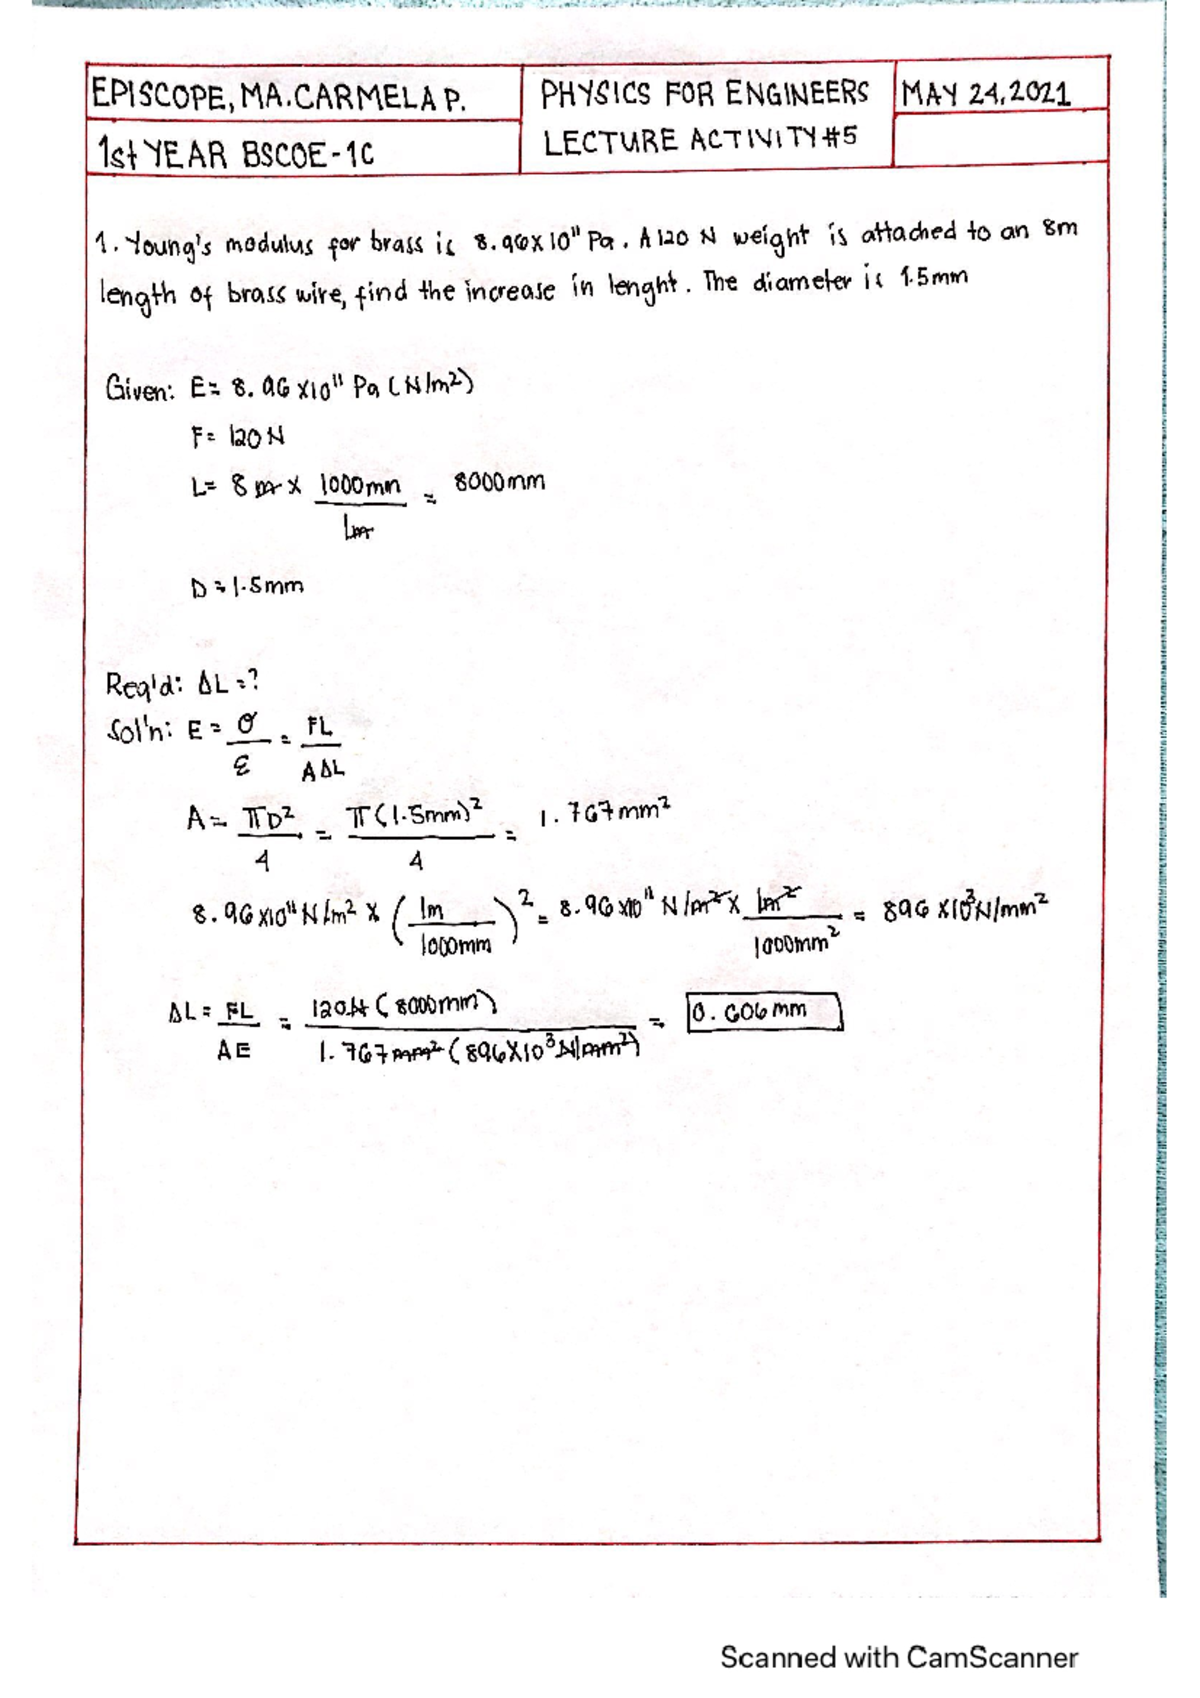 EPISCOPE, MA.CARMELA P.
PHYSICS FOR ENGINEERS
MAY 24, 2021
1st YEAR BSCOE-1C
LECTURE ACTIVITY #5
1. Young's modulus for brass is 8.96x10¹¹ Pa. A 120 N weight is attached to an 8m
length of brass wire, find the increase in lenght. The diameter is 1.5mm
Given: E= 8.96 x10¹¹ Pa (N/m²)
F= 120 N
L= 8 m x 1000mm / 1m = 8000mm
D = 1.5mm
Req'd: ΔL =?
Sol'n: E = σ / ε = FL / AΔL
A = πD² / 4 = π(1.5mm)² / 4 = 1.767mm²
8.96 x10¹¹ N/m² x (1m / 1000mm)² = 8.96 x10¹¹ N/m² x 1m² / 1000mm² = 896 x10³N/mm²
ΔL = FL / AE = 120N (8000mm) / 1.767mm² (896x10³ N/mm²) = 0.606 mm
Scanned with CamScanner